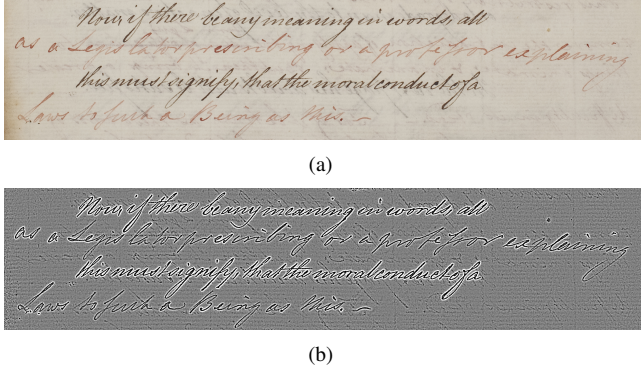 Now, if there be any meaning in words, all
as a Legislator prescribing or a professor explaining
this must signify, that the moral conduct of a
Laws to such a Being as this. –
(a)
Now, if there be any meaning in words, all
as a Legislator prescribing or a professor explaining
this must signify, that the moral conduct of a
Laws to such a Being as this. –
(b)